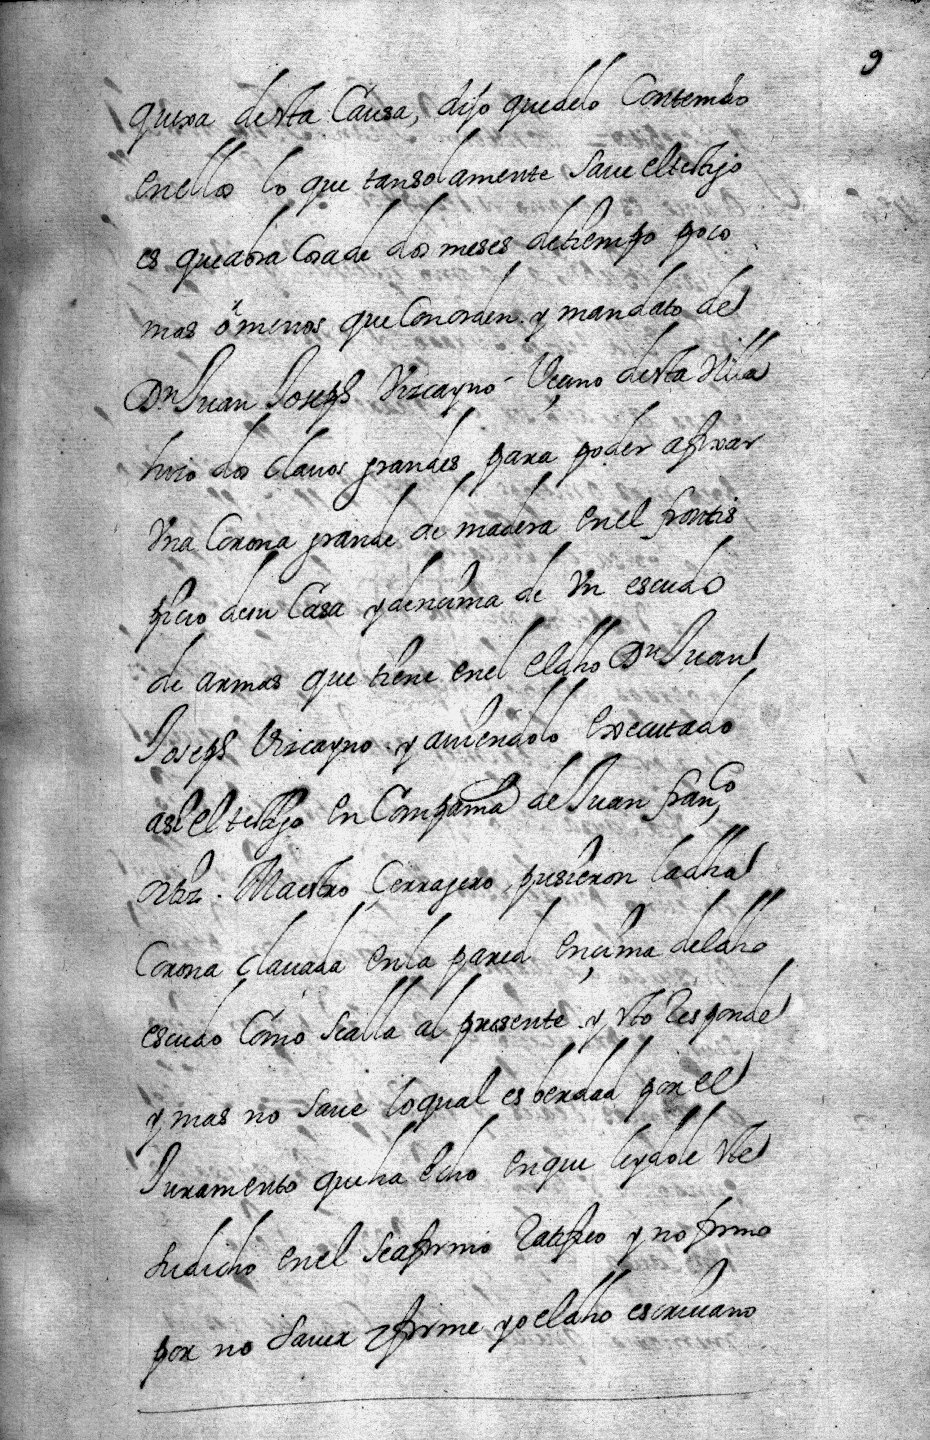 9
quexa desta Causa, dijo quedelo Contenido
enella lo que tansolamente save eltestigo
es queabra Cosade dos meses detiempo poco
mas ô menos que Conorden y mandato de
Dn Juan Joseph Vizcayno Veçino desta Villa
hizo dos clavos grandes para poder afixar
Vna Corona grande de madera enel frontis
picio desu Casa y dencima de Vn escudo
de armas que tiene enel eldho Dn Juan
Joseph Vizcayno y aviendolo executado
asi eltestigo en Compania de Juan franco
ortiz Maestro Çerrajero pusieron ladha
Corona clavada enla pared ençima deldho
escudo Como sealla al presente y esto Responde
y mas no save loqual es berdad por el
Juramento queha echo enque leydole este
sudicho enel seafirmo Ratifico y no firmo
por no saver firme yo eldho escrivano